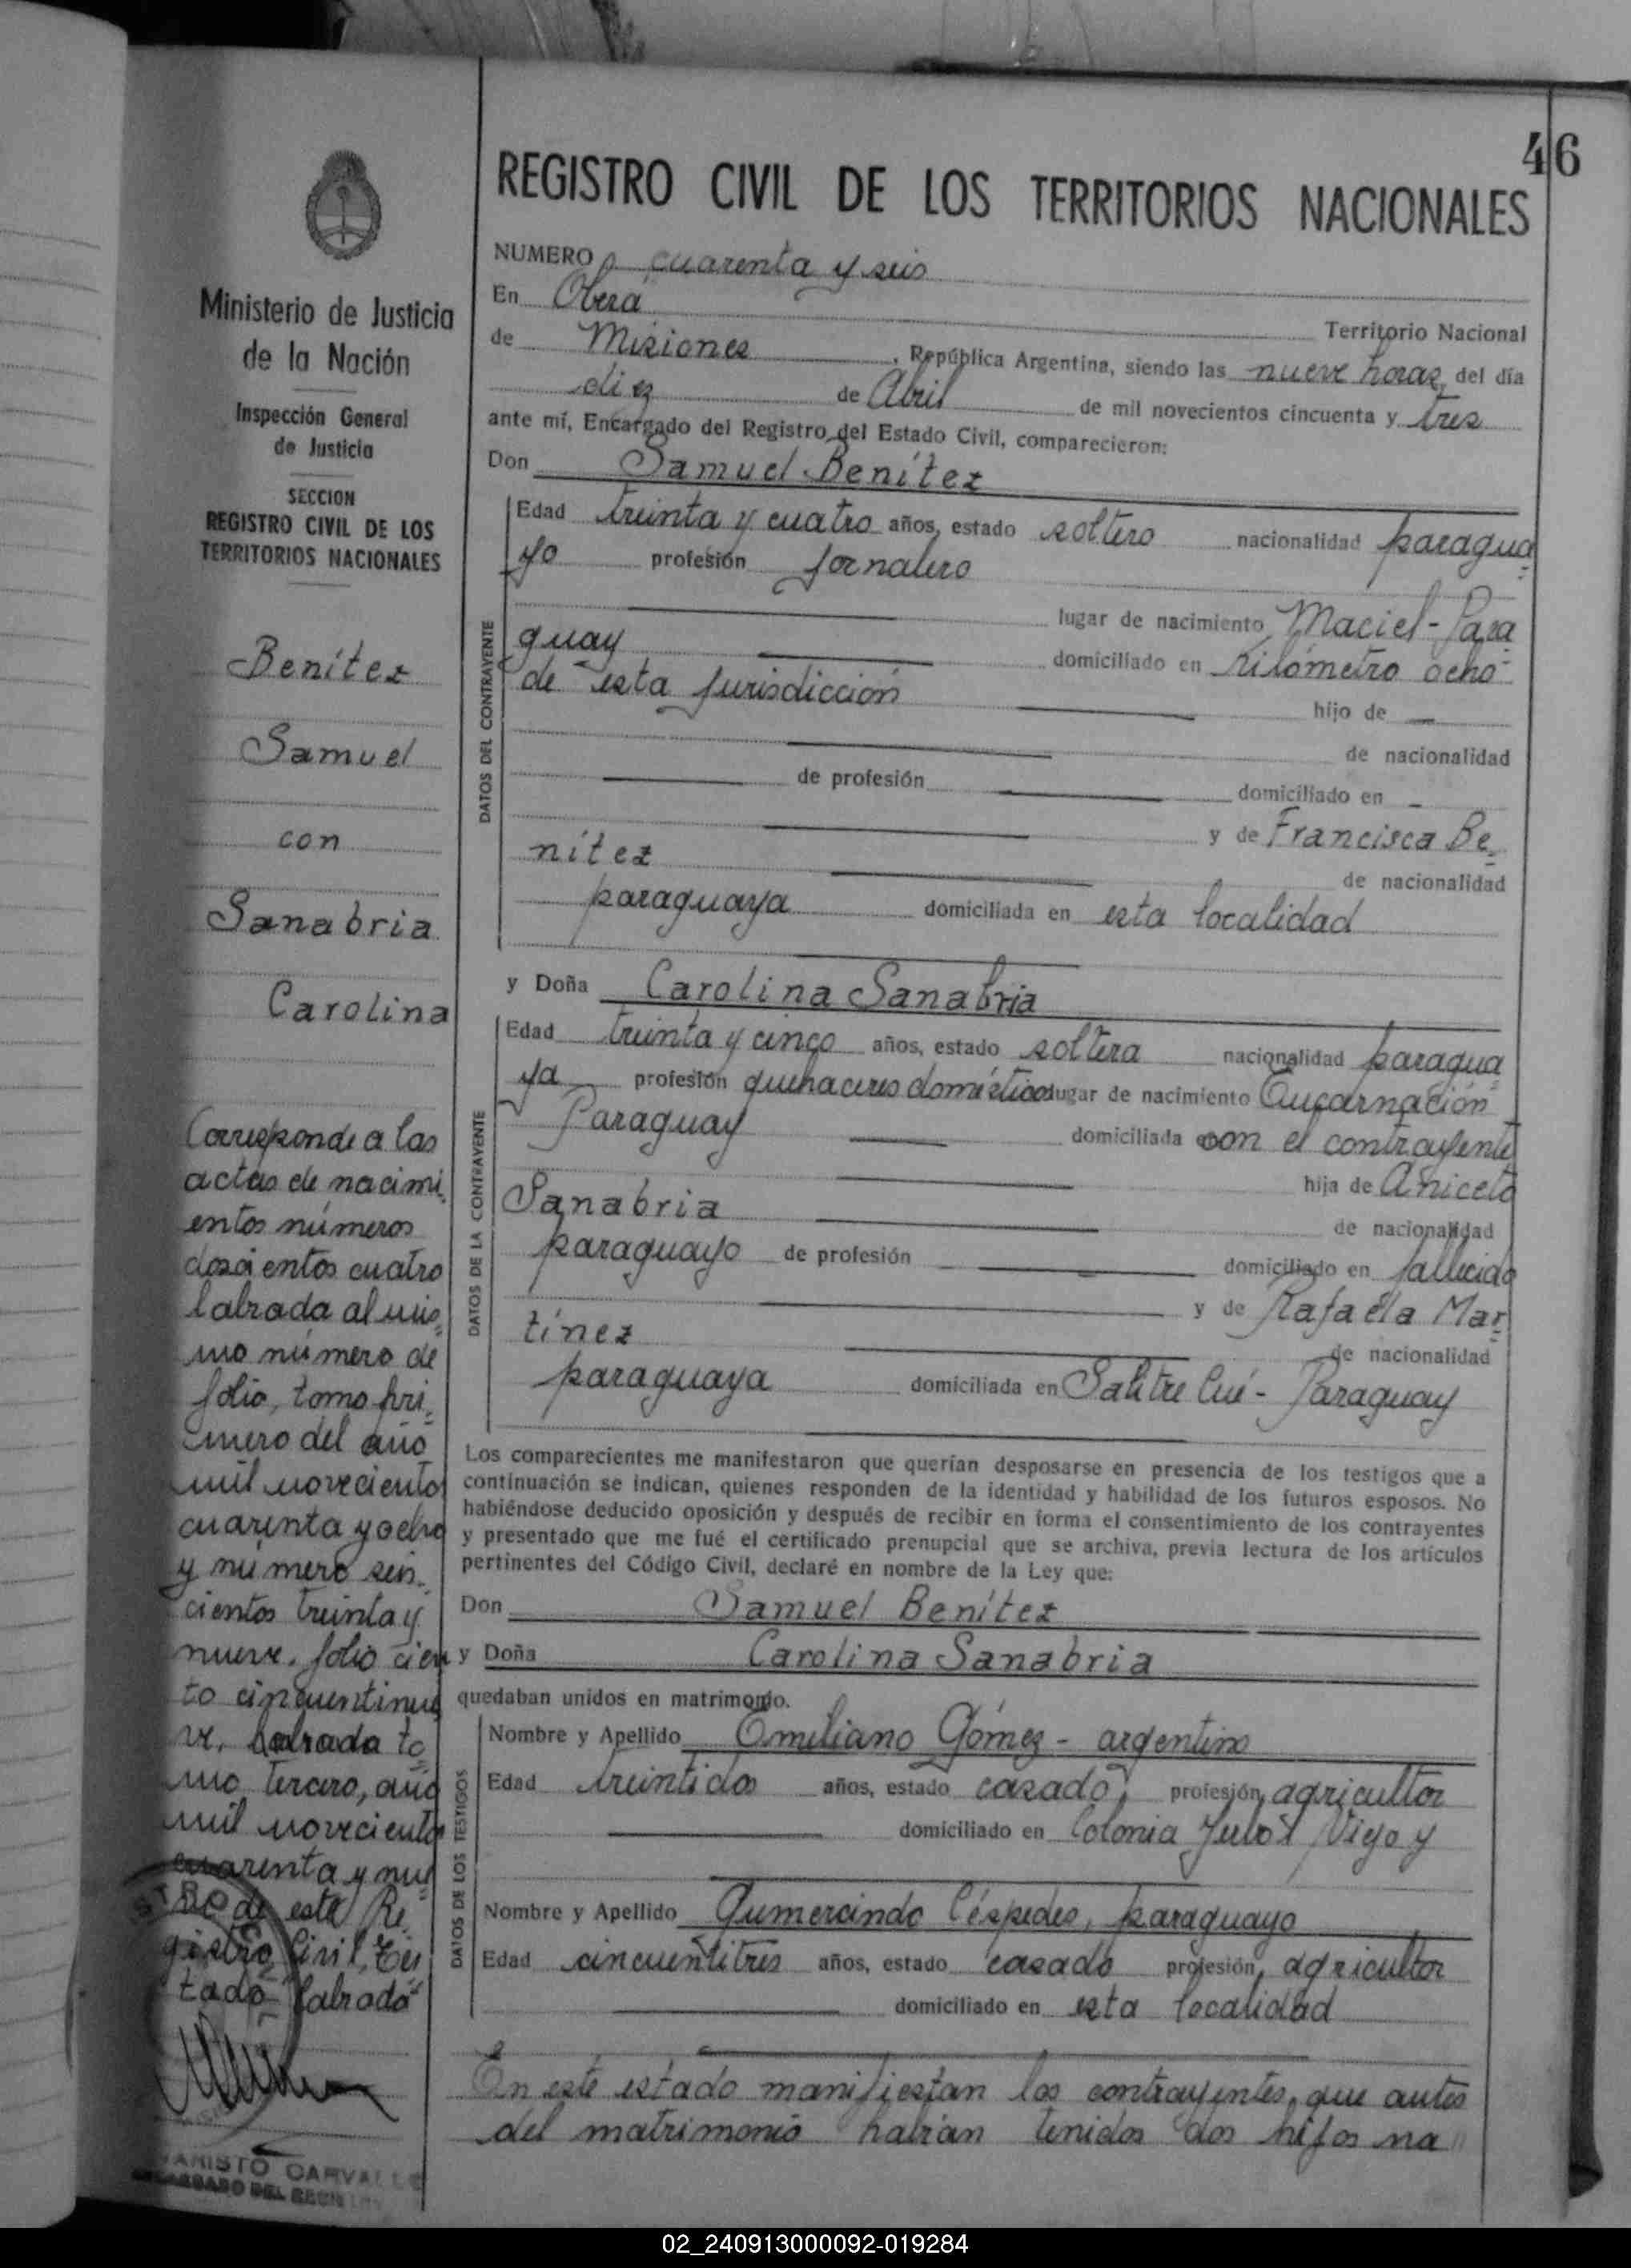 46
REGISTRO CIVIL DE LOS TERRITORIOS NACIONALES
Ministerio de Justicia
de la Nación
Inspección General
de Justicia
SECCION
REGISTRO CIVIL DE LOS
TERRITORIOS NACIONALES
Benítez
Samuel
con
Sanabria
Carolina
Corresponde a las
actas de nacimi
entos números
doscientos cuatro
labrada al mis
mo número de
folio, tomo pri
mero del año
mil novecientos
cuarenta y ocho
y número seis
cientos treinta y
nueve, folio cien
to cincuentinue
ve, labrada to
mo tercero, año
mil novecientos
cuarenta y nue
ve de este Re
gistro Civil, Tes
tado labrado
CARVALLO
NUMERO cuarenta y seis
En Oberá Territorio Nacional
de Misiones, República Argentina, siendo las nueve horas, del día
diez de Abril de mil novecientos cincuenta y tres
ante mí, Encargado del Registro del Estado Civil, comparecieron:
Don Samuel Benítez
DATOS DEL CONTRAYENTE
Edad treinta y cuatro años, estado soltero nacionalidad paragua
yo profesión jornalero
lugar de nacimiento Maciel - Para
guay domiciliado en Kilómetro ocho
de esta jurisdicción hijo de
de nacionalidad
de profesión domiciliado en
y de Francisca Be
nítez de nacionalidad
paraguaya domiciliada en esta localidad
y Doña Carolina Sanabria
DATOS DE LA CONTRAYENTE
Edad treinta y cinco años, estado soltera nacionalidad paragua
ya profesión quehaceres domésticos lugar de nacimiento Encarnación
Paraguay domiciliada con el contrayente
hija de Aniceto
Sanabria de nacionalidad
paraguayo de profesión domiciliado en fallecido
y de Rafaela Mar
tínez de nacionalidad
paraguaya domiciliada en Salitre Cué - Paraguay
Los comparecientes me manifestaron que querían desposarse en presencia de los testigos que a
continuación se indican, quienes responden de la identidad y habilidad de los futuros esposos. No
habiéndose deducido oposición y después de recibir en forma el consentimiento de los contrayentes
y presentado que me fué el certificado prenupcial que se archiva, previa lectura de los artículos
pertinentes del Código Civil, declaré en nombre de la Ley que:
Don Samuel Benítez
y Doña Carolina Sanabria
quedaban unidos en matrimonio.
DATOS DE LOS TESTIGOS
Nombre y Apellido Emiliano Gómez - argentino
Edad treintidos años, estado casado, profesión agricultor
domiciliado en Colonia Yerbal Viejo y
Nombre y Apellido Gumercindo Céspedes, paraguayo
Edad cincuentitres años, estado casado profesión, agricultor
domiciliado en esta localidad
En este estado manifiestan los contrayentes, que antes
del matrimonio habían tenidos dos hijos na
02_240913000092-019284